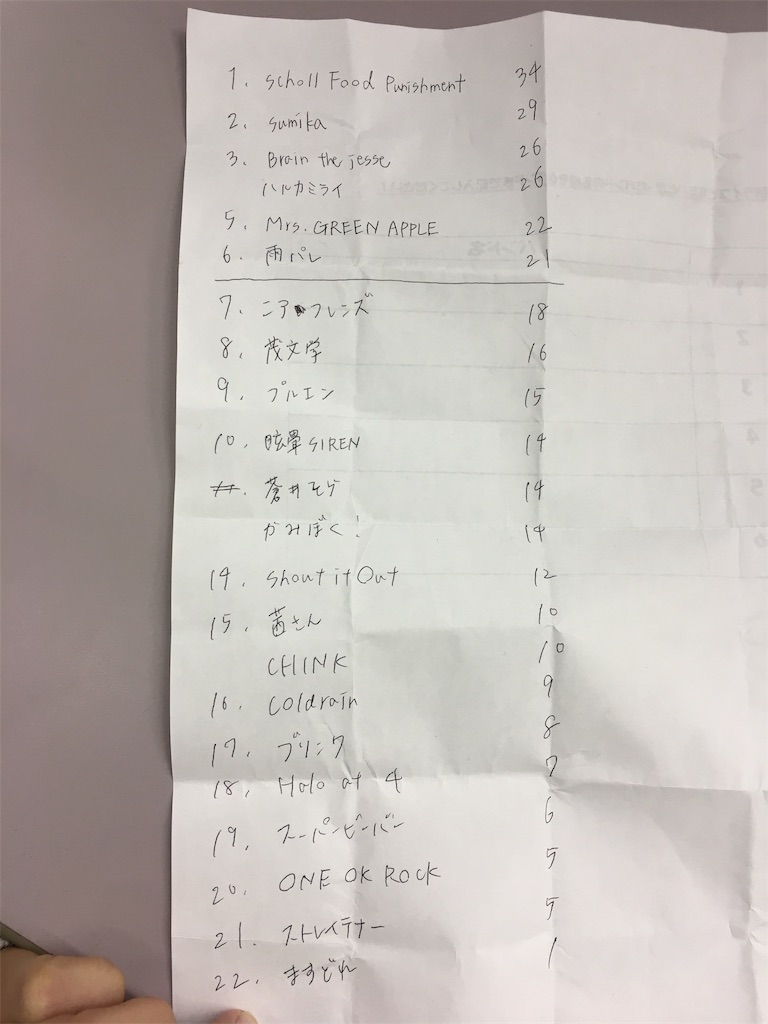 1. scholl Food Punishment 34
2. sumika 29
3. Brain the jesse 26
ハルカミライ 26
5. Mrs. GREEN APPLE 22
6. 雨パレ 21
7. ニア・フレンズ 18
8. 茂文学 16
9. プルエン 15
10. 眩暈SIREN 14
蒼井そら 14
かみぼく! 14
14. Shout it Out 12
15. 茜さん 10
CHINK 10
16. Coldrain 9
17. ブリンク 8
18. Halo at 4 7
19. スーパービーバー 6
20. ONE OK ROCK 5
21. ストレイテナー 5
22. ますどれ 1